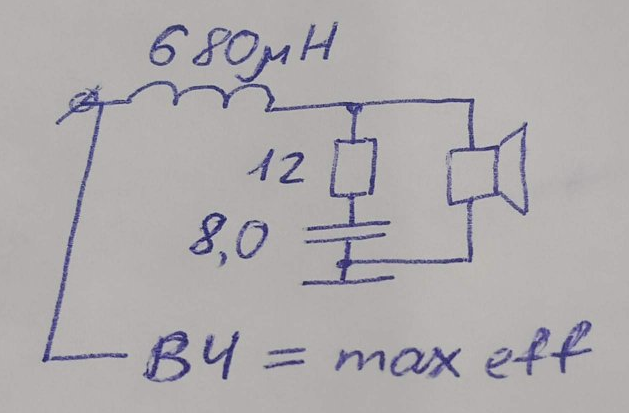 680μH
12
8,0
ВЧ = max eff